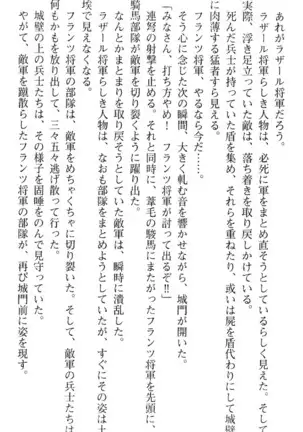 あれがラザール将軍だろう。
ラザール将軍らしき人物は、必死に軍をまとめ直そうとしているらしく見えた。そして
実際、浮き足立っていた敵軍は、落ち着きを取り戻しかけている。
死んだ兵士が持っていた盾を集め、それらを重ねたり、或いは屍を盾代わりにして城壁
に肉薄する猛者すら見える。
フランツ将軍、やるなら今だ……。
そう心に念じた次の瞬間、大きく軋む音を響かせながら、城門が開いた。
「みなさん、打ち方やめ! フランツ将軍が討って出るぞ!!」
連弩の射撃を止める。それと同時に、葦毛の駿馬にまたがったフランツ将軍を先頭に、
騎馬部隊が敵軍を切り裂くように躍り出た。
なんとかまとまりを取り戻そうとしていた敵軍は、瞬時に潰乱した。
ラザール将軍らしき人物は、なおも部隊をまとめようとしていたが、すぐにその姿は土
埃で見えなくなる。
フランツ将軍の部隊は、敵軍をめちゃくちゃに切り裂いた。そして、敵軍の兵士たちは
何もかもを放り出して、三々五々逃げ散って行った。
城壁の上の兵士たちは、その様子を固唾をのんで見守っていた。
やがて、敵軍を蹴散らしたフランツ将軍の部隊が、再び城門前に姿を現す。